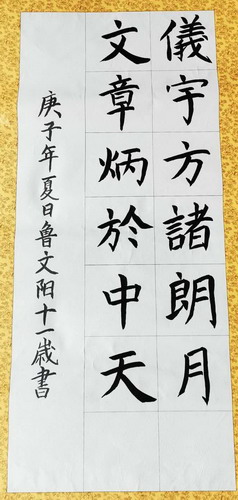 儀宇方諸朗月
文章炳於中天
庚子年夏日鲁文阳十一歳書